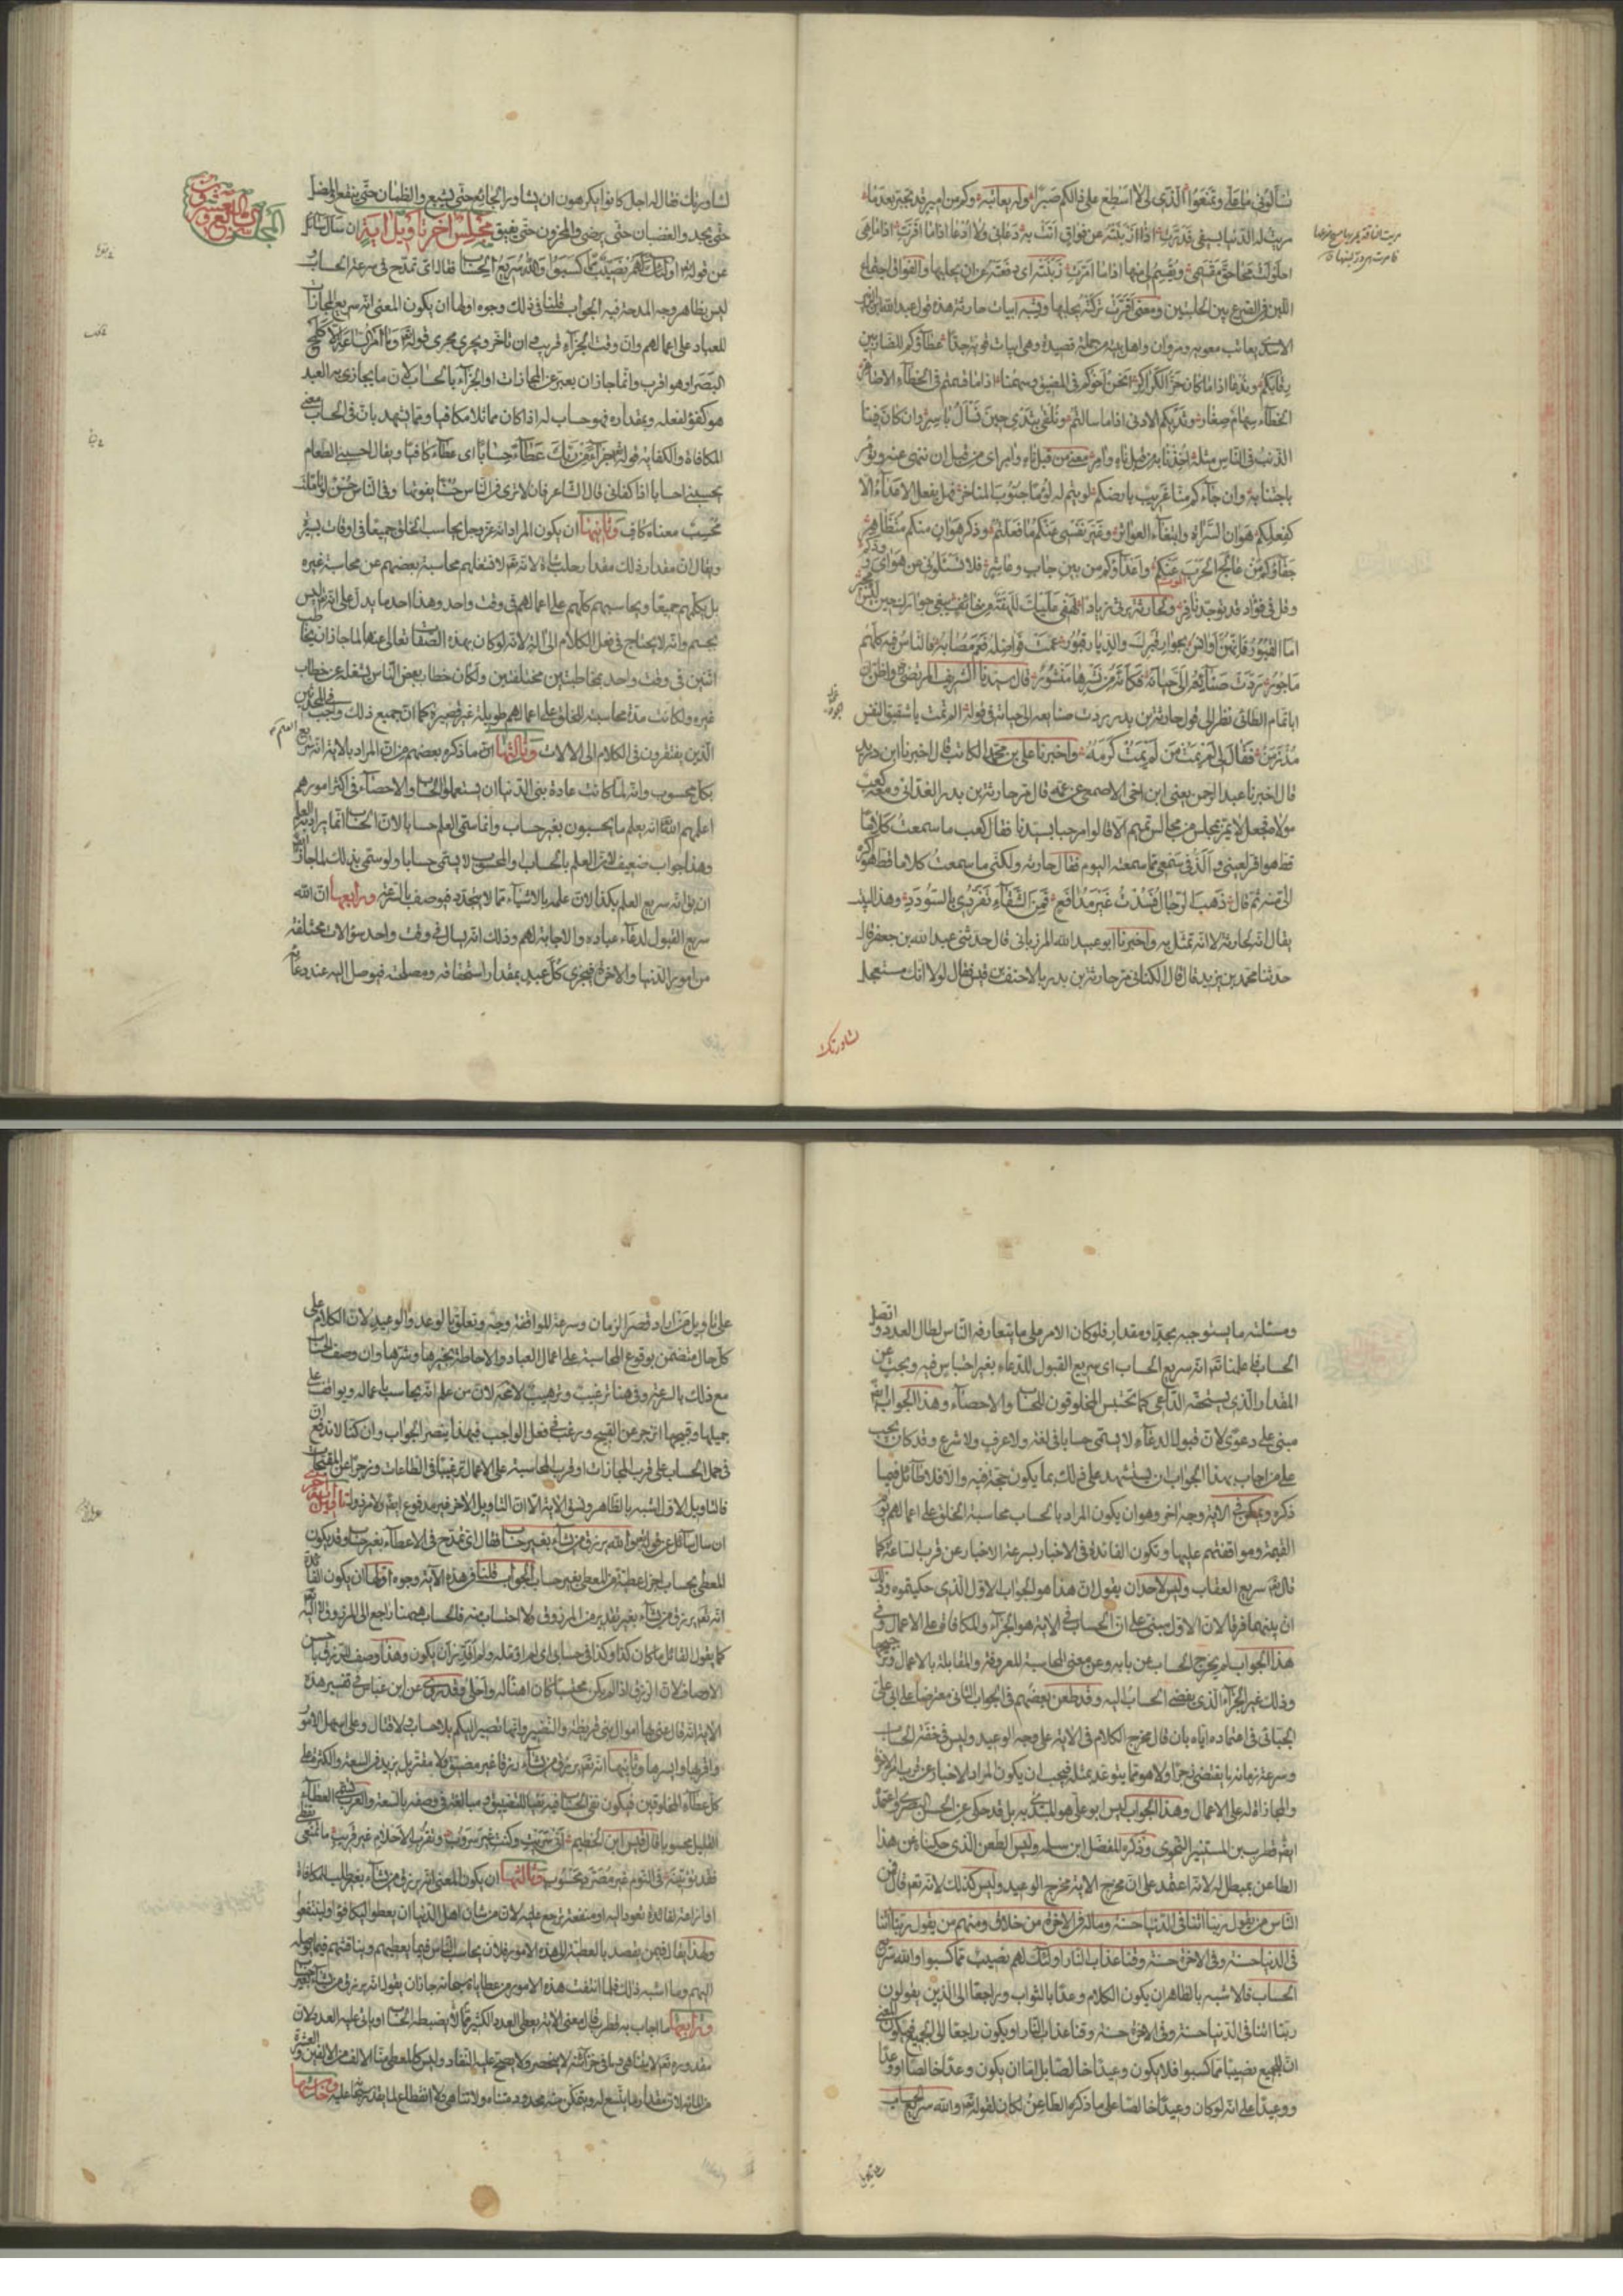 اللبن في الضرع بين الحلبتين ومعنى اقترت تركته يحلبها وتشبه ابيات حارثة هذه قول عبد الله بن الزبير
الاسدي يعاتب معوية ومروان واهل بيته من جملة قصيدة وهي ابيات قوية جدا عطاؤكم للضاربين
رقابكم وندعى اذا ما كان حز الكراكر انحن اخوكم في المضيق وسهمنا اذا ما قسمتم في الخطاء الاصاغر
الخطاء سهام صغار وثديكم الادنى اذا ما سالتم ونلقى بثدي حين نسأل باسر وان كان فينا
الذنب في الناس مثله اخذنا به من قبل ناه وآمر معنى من قبل ناه وآمر اي من قبل ان ننهى عنه ونؤمر
وان جاءكم منا غريب بارضكم لويتم له يوما جنوب المناخر فهل يفعل الاعداء الا
كفعلكم هوان السراة وابتغاء العواثر وغير نفسي عنكم ما فعلتم وذكر هوان منكم متظاهر
جفاؤكم من عالج الحرب عنكم واعداؤكم من بين جاب وعاشر فلا تسئلوني عن هواي وودكم
وقل في فؤاد قد توجه نافر ولحارثة يرثي زيادا لهفي عليك للهفة من خائف يبغي جوارك حين ليس مجير
اما القبور فانهن اوانس بجوار قبرك والديار قبور عمت فواضله فعم مصابه فالناس فيه كلهم
ماجور ردت صنائعه الى حياته فكأنه من نشرها منشور قال سيدنا الشريف المرتضى واظن ان
ابا تمام الطائي نظر الى قول حارثة بن بدر ردت صنائعه الى حياته في قوله الم تمت يا شقيق النفس
مذ زمن فقال لي لم يمت من لم يمت كرمه واخبرنا علي بن محمد الكاتب قال اخبرنا ابن دريد
قال اخبرنا عبد الرحمن يعني ابن اخي الاصمعي عن عمه قال مر حارثة بن بدر الغداني ومعه كعب
مولاه فجعل لا يمر بمجلس من مجالس تميم الا قالوا مرحبا بسيدنا فقال كعب ما سمعت كلاما
قط هو اقر لعيني والذ في سمعي مما سمعته اليوم فقال حارثة ولكني ما سمعت كلاما قط هو اكره
الي منه ثم قال ذهب الرجال فسدت غير مدافع ومن الشقاء تفردي بالسودد وهذا البيت
يقال انه لحارثة الا انه تمثل به واخبرنا ابو عبيد الله المرزباني قال حدثني عبد الله بن جعفر قال
حدثنا محمد بن يزيد قال قال الكناني مر حارثة بن بدر بالاحنف بن قيس فقال لولا انك مستعجل
لشاورتك
لشاورتك فقال له اجل كانوا يكرهون ان يشاور الجائع حتى يشبع والظمان حتى ينقع والمضل
حتى يجد والغضبان حتى يرضى والمحزون حتى يفيق مجلس اخر تاويل اية ان سال سائل
عن قوله تع اولئك لهم نصيب مما كسبوا والله سريع الحساب فقال اي تمدح في سرعة الحساب
ليس بظاهر وجه المدحة فيه الجواب قلنا في ذلك وجوه اولها ان يكون المعنى انه سريع المجازات
للعباد على اعمالهم وان وقت الجزاء قريب وان تاخر ويجري مجرى قوله تع وما امر الساعة الا كلمح
البصر او هو اقرب وانما جاز ان يعبر عن المجازات او الجزاء بالحساب لان ما يجازى به العبد
هو كفؤ لفعله وبمقداره فهو حساب له اذا كان مماثلا مكافيا ومما يشهد بان في الحساب معنى
المكافاة والكفاية قوله تع جزاء من ربك عطاء حسابا اي عطاء كافيا ويقال احسبني الطعام
يحسبني احسابا اذا كفاني قال الشاعر
محسب معناه كاف وثانيها ان يكون المراد انه عز وجل يحاسب الخلق جميعا في اوقات يسيرة
ويقال ان مقدار ذلك مقدار حلب شاة لانه تع لا تشغله محاسبة بعضهم عن محاسبة غيره
بل يكلمهم جميعا ويحاسبهم كلهم على اعمالهم في وقت واحد وهذا احد ما يدل على انه تع ليس
بجسم وانه لا يحتاج في فعل الكلام الى آلة لانه لو كان بهذه الصفات تعالى عنها لما جاز ان يخاطب
اثنين في وقت واحد بمخاطبتين مختلفتين ولكان خطاب بعض الناس يشغله عن خطاب
غيره ولكانت مدة محاسبته للخلق على اعمالهم طويلة غير قصيرة كما ان جميع ذلك واجب في المحدثين
الذين يفتقرون في الكلام الى الالات وثالثها ان ما ذكره بعضهم من ان المراد بالاية انه سريع العلم
بكل محسوب وانه لما كانت عادة بني الدنيا ان يستعملوا الحساب والاحصاء في اكثر امورهم
اعلمهم الله انه يعلم ما يحسبون بغير حساب وانما سمي العلم حسابا لان الحساب انما يراد به العلم
وهذا جواب ضعيف لان العلم بالحساب والمحسوب لا يسمى حسابا ولو سمي بذلك لما جاز ايض
ان يق انه سريع العلم بكذا لان علمه بالاشياء مما لا يتجدد فيوصف بالسرعة ورابعها ان الله
سريع القبول لدعاء عباده والاجابة لهم وذلك انه يسال في وقت واحد سؤالات مختلفة
من امور الدنيا والاخرة فيجزي كل عبد بمقدار استحقاقه ومصلحته فيوصل اليه عند دعائه
ومسئلته ما يستوجبه بحد ومقدار فلو كان الامر على ما يتعارفه الناس لطال العدد واتصل
الحساب فاعلمنا تع انه سريع الحساب اي سريع القبول للدعاء بغير احتباس فيه وبحث عن
المقدار الذي يستحقه الداعي كما تحتبس المخلوقون للحساب والاحصاء وهذا الجواب ايض
مبني على دعوى لان قبول الدعاء لا يسمى حسابا في لغة ولا عرف ولا شرع وقد كان يجب
على من اجاب بهذا الجواب ان يستشهد على ذلك بما يكون حجة فيه والا فلا طائل فيما
ذكره ويمكن في الاية وجه اخر وهو ان يكون المراد بالحساب محاسبة الخلق على اعمالهم يوم
القيمة وموافقتهم عليها وتكون الفائدة في الاخبار بسرعته الاخبار عن قرب الساعة كما
قال تع سريع العقاب وليس لاحد ان يقول ان هذا هو الجواب الاول الذي حكيتموه وذلك
ان بينهما فرقا لان الاول مبني على ان الحساب في الاية هو الجزاء والمكافاة على الاعمال وفي
هذا الجواب لم يخرج الحساب عن بابه وعن معنى المحاسبة المعروفة والمقابلة بالاعمال وترجيحها
وذلك غير الجزاء الذي يفضي الحساب اليه وقد طعن بعضهم في الجواب الثاني معترضا على ابي علي
الجبائي في اعتماده اياه بان قال مخرج الكلام في الاية على وجه الوعيد وليس في خفة الحساب
وسرعة زمانه ما يقتضي زجرا ولا هو مما يتوعد بمثله فيجب ان يكون المراد الاخبار عن قرب امر الاخرة
والمجازاة له على الاعمال وهذا الجواب ليس ابو علي هو المبتدئ به بل قد حكي عن الحسن البصري واعتمده
ايض قطرب بن المستنير النحوي وذكره المفضل ابن سلمه وليس الطعن الذي حكيناه عن هذا
الطاعن بمبطل له لانه اعتمد على ان مخرج الاية مخرج الوعيد وليس كذلك لانه تع قال فمن
الناس من يقول ربنا اتنا في الدنيا حسنة وماله في الاخرة من خلاق ومنهم من يقول ربنا اتنا
في الدنيا حسنة وفي الاخرة حسنة وقنا عذاب النار اولئك لهم نصيب مما كسبوا والله سريع
الحساب فالاشبه بالظاهر ان يكون الكلام وعدا بالثواب وراجعا الى الذين يقولون
ربنا اتنا في الدنيا حسنة وفي الاخرة حسنة وقنا عذاب النار او يكون راجعا الى الجميع فيكون المعنى
ان للجميع نصيبا مما كسبوا فلا يكون وعيدا خالصا بل اما ان يكون وعدا خالصا او وعدا
ووعيدا على انه لو كان وعيدا خالصا على ما ذكره الطاعن لكان لقوله تع والله سريع الحساب
على تاويل من اراد قصر الزمان وسرعة الموافقة وجه وتعلق بالوعد والوعيد لان الكلام على
كل حال متضمن بوقوع المحاسبة على اعمال العباد والاحاطة بخيرها وشرها وان وصف الحساب
مع ذلك بالسرعة وفي هذا ترغيب وترهيب لا محة لان من علم انه يحاسب باعماله ويواقف على
جميلها وقبيحها انزجر عن القبيح ورغب في فعل الواجب فبهذا ينصر الجواب وان كنا لا ندفع ان
في حمل الحساب على قرب المجازات او قرب المحاسبة على الاعمال ترغيبا في الطاعات وزجرا عن المقبحات
فالتاويل الاول اشبه بالظاهر ونسق الاية الا ان التاويل الاخر غير مدفوع ايض ولا مردول تاويل اية اخرى
ان سال سائل عن قوله تع والله يرزق من يشاء بغير حساب فقال اي تمدح في الاعطاء بغير حساب وقد يكون
المعطي بحساب اجزل عطية من المعطي بغير حساب الجواب قلنا في هذه الاية وجوه اولها ان يكون الفائدة
انه تع يرزق من يشاء بغير تقدير من المرزوق ولا احتساب منه فالحساب ههنا راجع الى المرزوق لا اليه تع
كما يقول القائل ما كان كذا وكذا في حسابي اي لم اؤمله ولم اقدر ان يكون وهذا وصف للرزق باحسن
الاوصاف لان الرزق اذا لم يكن محتسبا كان اهنأ له واحلى وقد روي عن ابن عباس في تفسير هذه
الاية انه قال عنى بها اموال بني قريظة والنضير وانها تصير اليكم بلا حساب ولا قتال وعلى اسهل الامور
واقربها وايسرها وثانيها انه تع يرزق من يشاء رزقا غير مضيق ولا مقتر بل يزيد في السعة والكثرة على
كل عطاء المخلوقين فيكون نفي الحساب فيه نفيا للتضييق ومبالغة في وصفه بالسعة والعرب تسمي العطاء
القليل محسوبا قال قيس ابن الخطيم انى سربت وكنت غير سروب وتقرب الاحلام غير قريب ما تمنعي يقظى
فقد تؤتينه في النوم غير مصرد محسوب وثالثها ان يكون المعنى انه يرزق من يشاء بغير طلب المكافاة
او اراغة لفائدة تعود اليه او منفعة ترجع عليه لان من شان اهل الدنيا ان يعطوا ليكافؤا ولينتفعوا
ولهذا يقال فيمن يقصد بالعطية الى هذه الامور فلان يحاسب الناس فيما يعطيهم ويناقشهم فيما يوصله
اليهم وما اشبه ذلك فلما انتفت هذه الامور من عطاياه سبحانه جاز ان يقول انه يرزق من يشاء بغير حساب
ورابعها ما اجاب به قطرب قال معنى الاية يعطي العدد الكثير مما لا يضبطه الحساب او ياتي عليه العدد لان
مقدوره تع لا يتناهى وما في خزائنه لا ينحصر ولا يصح عليه النفاد وليس كالمعطي منا الالف من الالفين والعشرة
من المائة لان مقدار ما يتسع له ويتمكن منه محدود متناه ولا تناهي ولا انقطاع لما يقدر تع عليه وخامسها